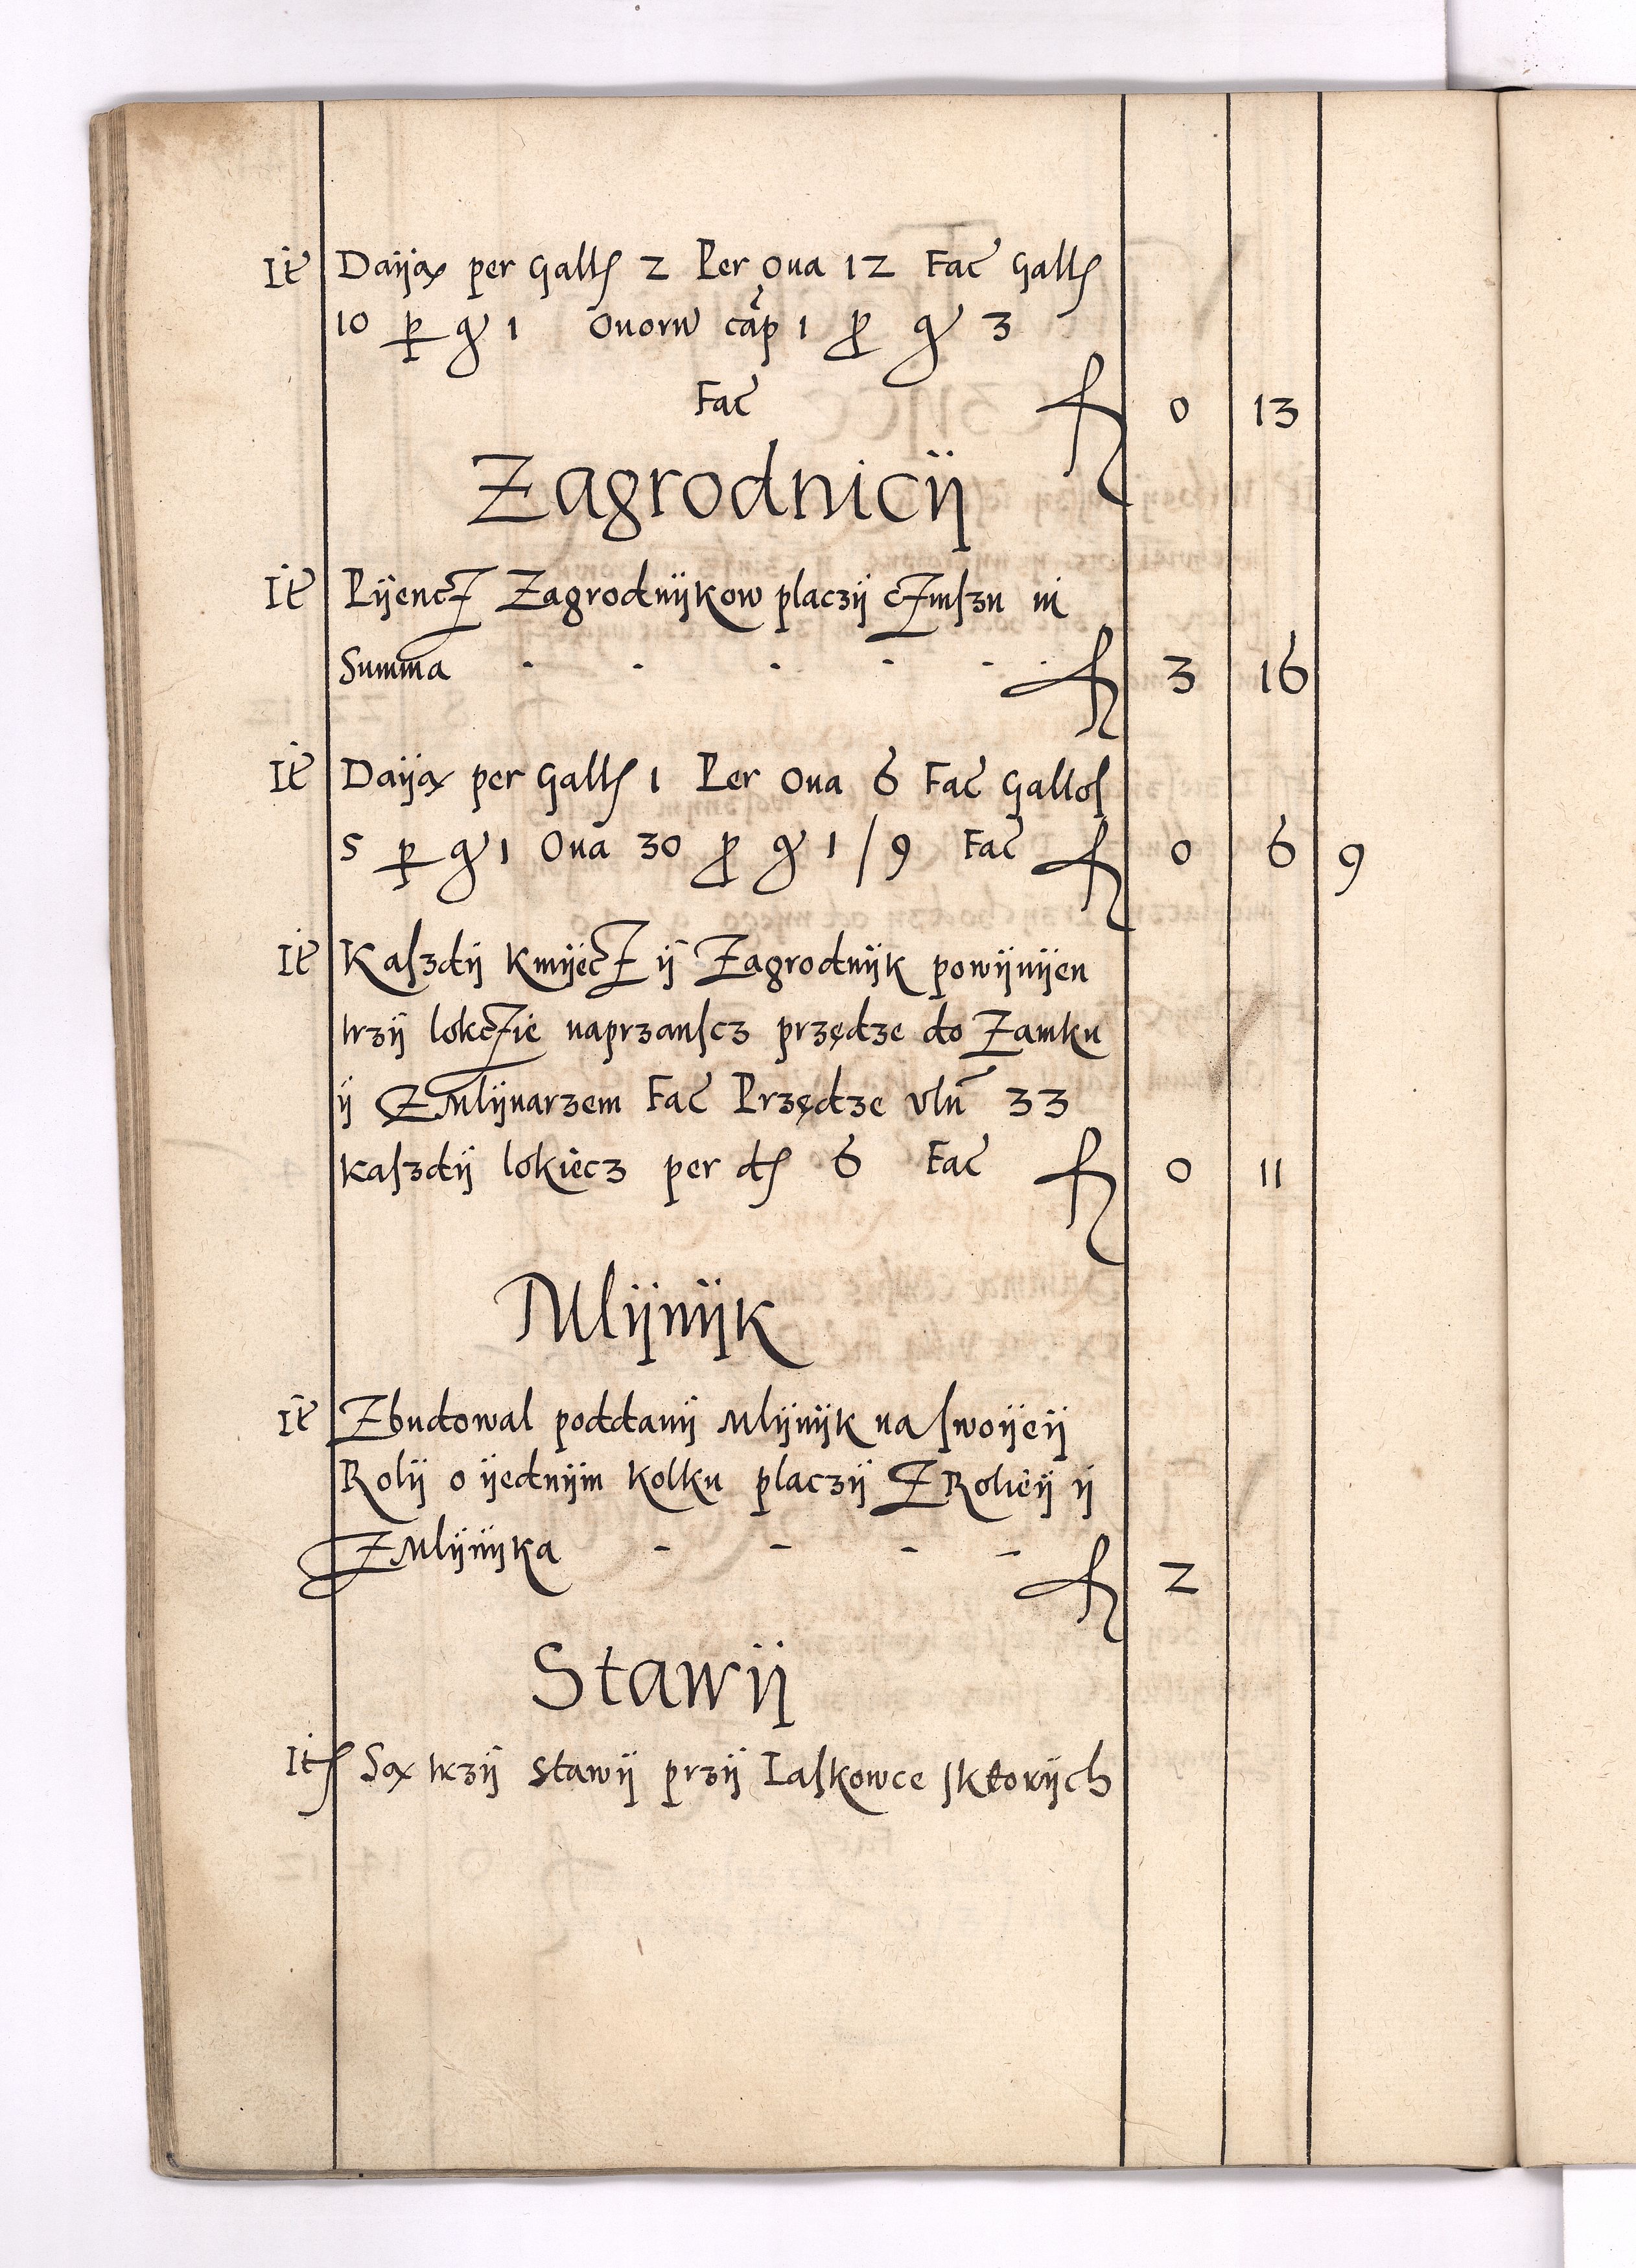 It Daiją per Galls 2 Per Oua 12 Fac Galls
10 p g 1 Ouoru cap 1 p g 3
Fac fl 0 13
Zagrodnicij
It Pijencz Zagrodnijkow placzij czinszu in
Summa - - - - - fl 3 16
It Daiją per Galls 1 Per Oua 6 Fac Gallos
5 p g 1 Oua 30 p g 1/9 Fac fl 0 6 9
It Kaszdij Kmijecz ij Zagrodnijk powijnijen
trzij lokczie naprzanscz przędze do Zamku
ij Z Mlijnarzem Fac Przędze vln 33
kaszdij lokiecz per ds 6 Fac fl 0 11
Mlijnijk
It Zbudowal poddanij Mlijnijk na swoijeij
Rolij o ijednijm Kolku placzij Z Rolieij ij
Z Mlijnijka - - - - fl 2
Stawij
It Są trzij stawij przij Iaskowce sktorijch